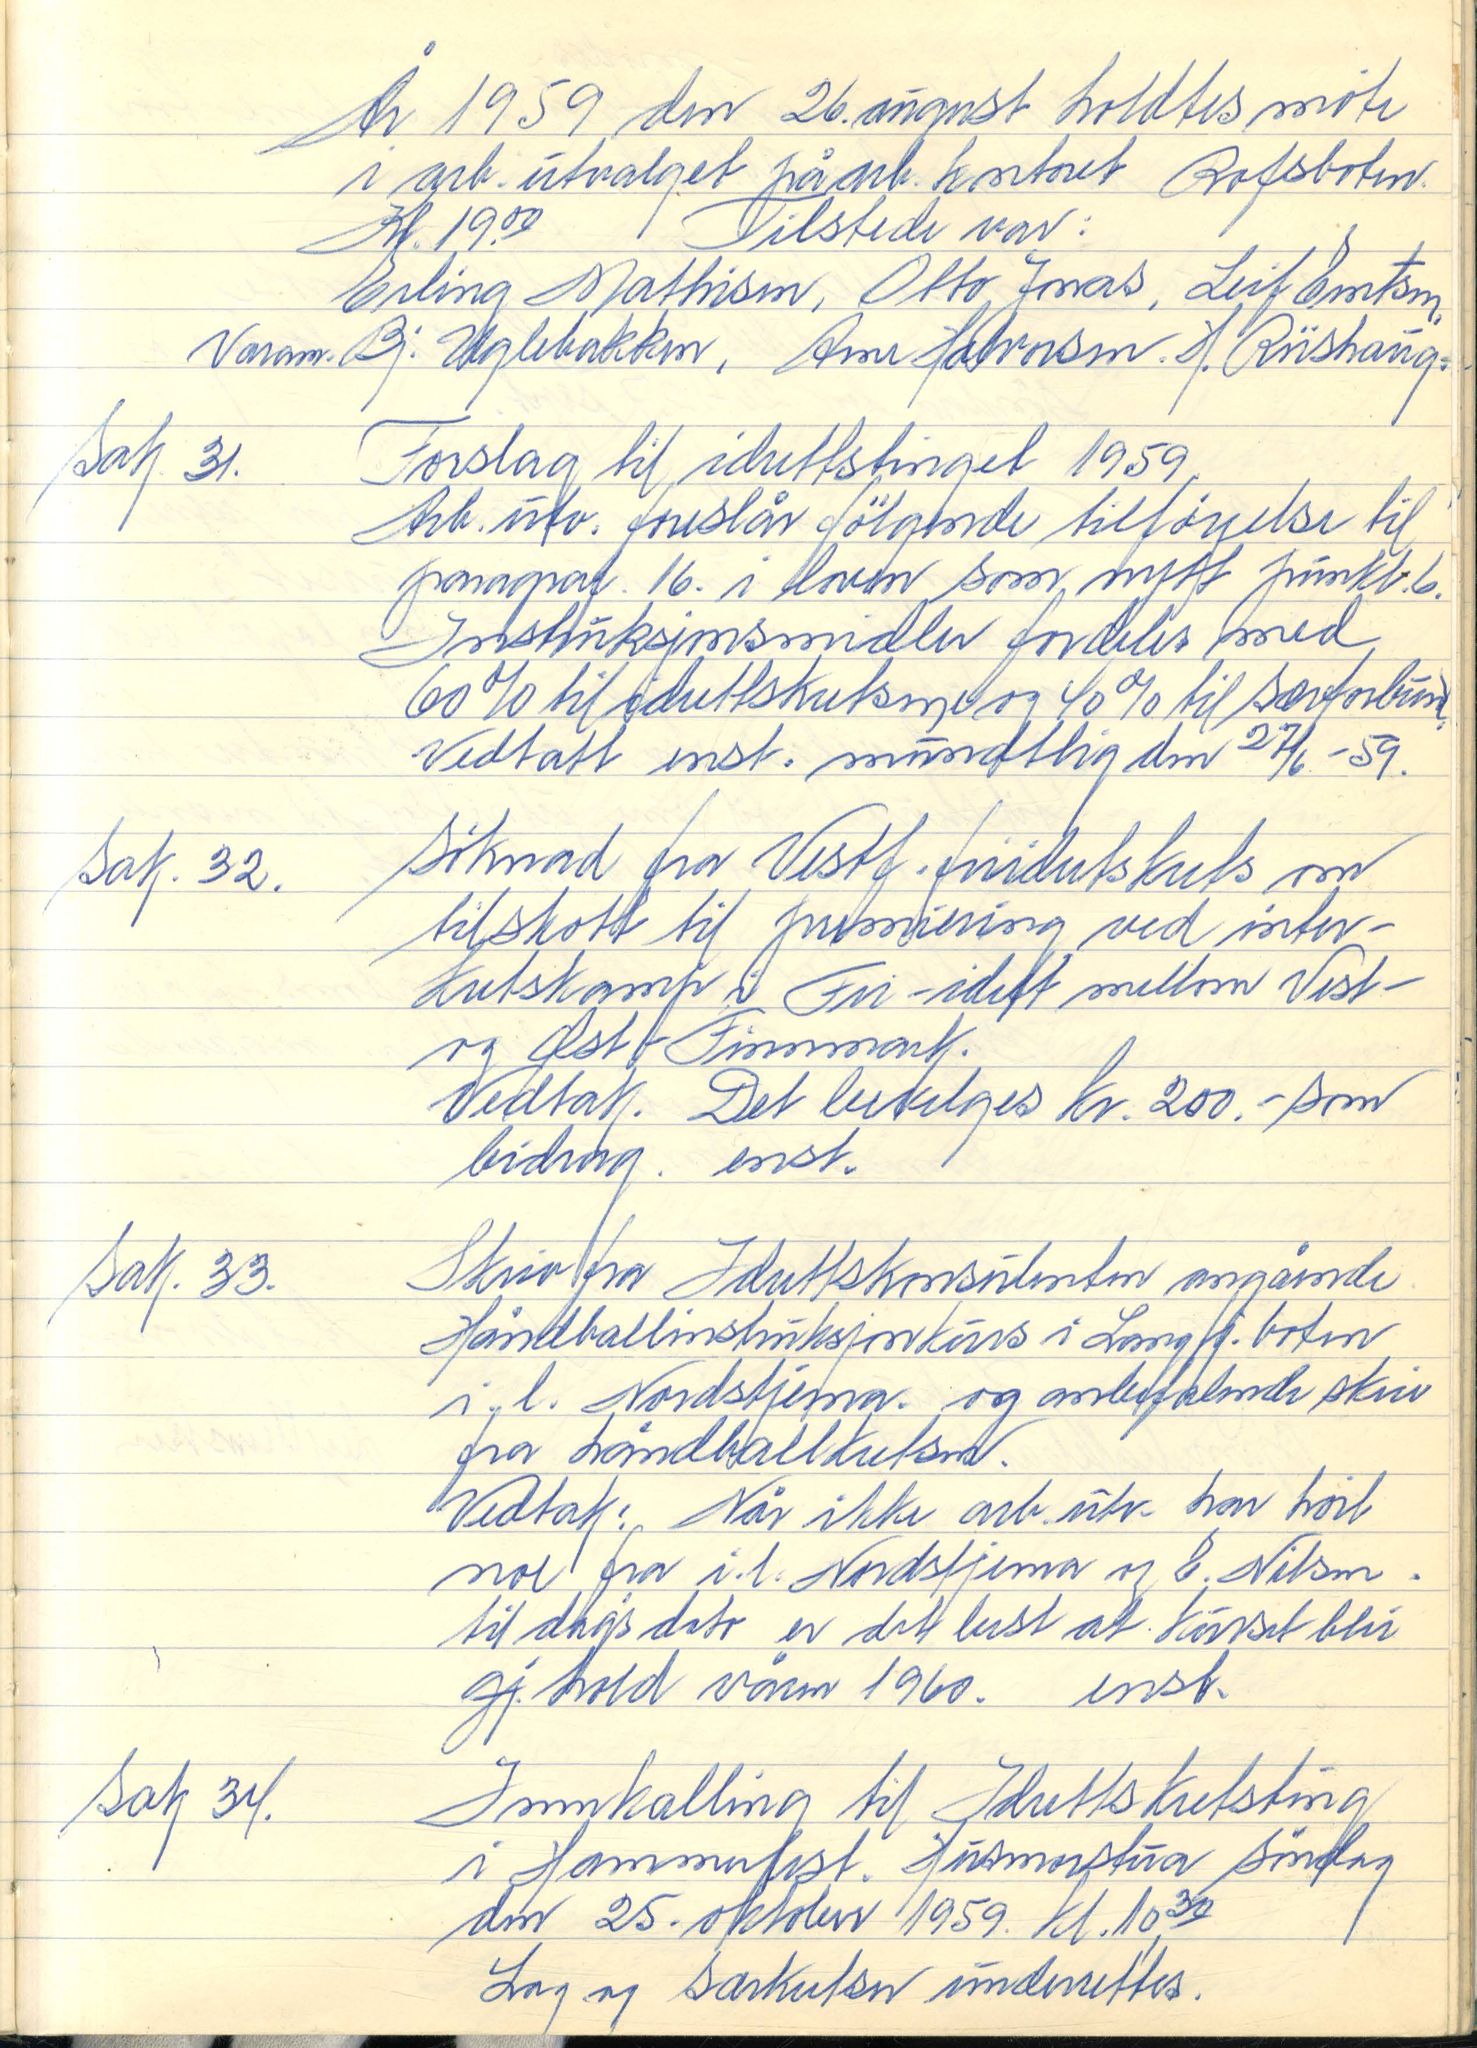 År 1959 den 26. august holdtes möte
i arb. utvalget på arb. kontoret Rofsboten.
Kl. 19.00 Tilstede var:
Erling Mathisen, Otto Jonas, Leif Evertsen,
Varam. Bj. Uglebakken, Arne Halvorsen. H. Riishaug.
Sak. 31. Forslag til idrettstinget 1959.
Arb. utv. foreslår fölgende tilföyelse til
paragraf. 16. i loven som nytt punkt. 6.
Instruksjonsmidler fordeles med
60% til idrettskretsene og 40% til særforbund.
Vedtatt enst. mundtlig den 27/6 - 59.
Sak. 32. Söknad fra Vestf. friidretskrets om
tilskott til premiering ved inter-
kretskamp i Fri-idrett mellom Vest-
og Öst-Finnmark.
Vedtak. Det bevilges kr. 200.- som
bidrag. enst.
Sak. 33. Skriv fra Idrettskonsulenten angående
Håndballinstruksjonkurs i Langfj. boten
i. l. Nordstjerna. og anbefalende skriv
fra håndballkretsen.
Vedtak: Når ikke arb. utv. har hört
noe fra i. l. Nordstjerna og E. Nilsen.
til dags dato er det best at kurset blir
gj. hold våren 1960. enst.
Sak 34. Innkalling til Idrettskretsting
i Hammerfest. Husmorstua Söndag
den 25. oktober 1959. kl. 10.30
Lag og særkretser underrettes.